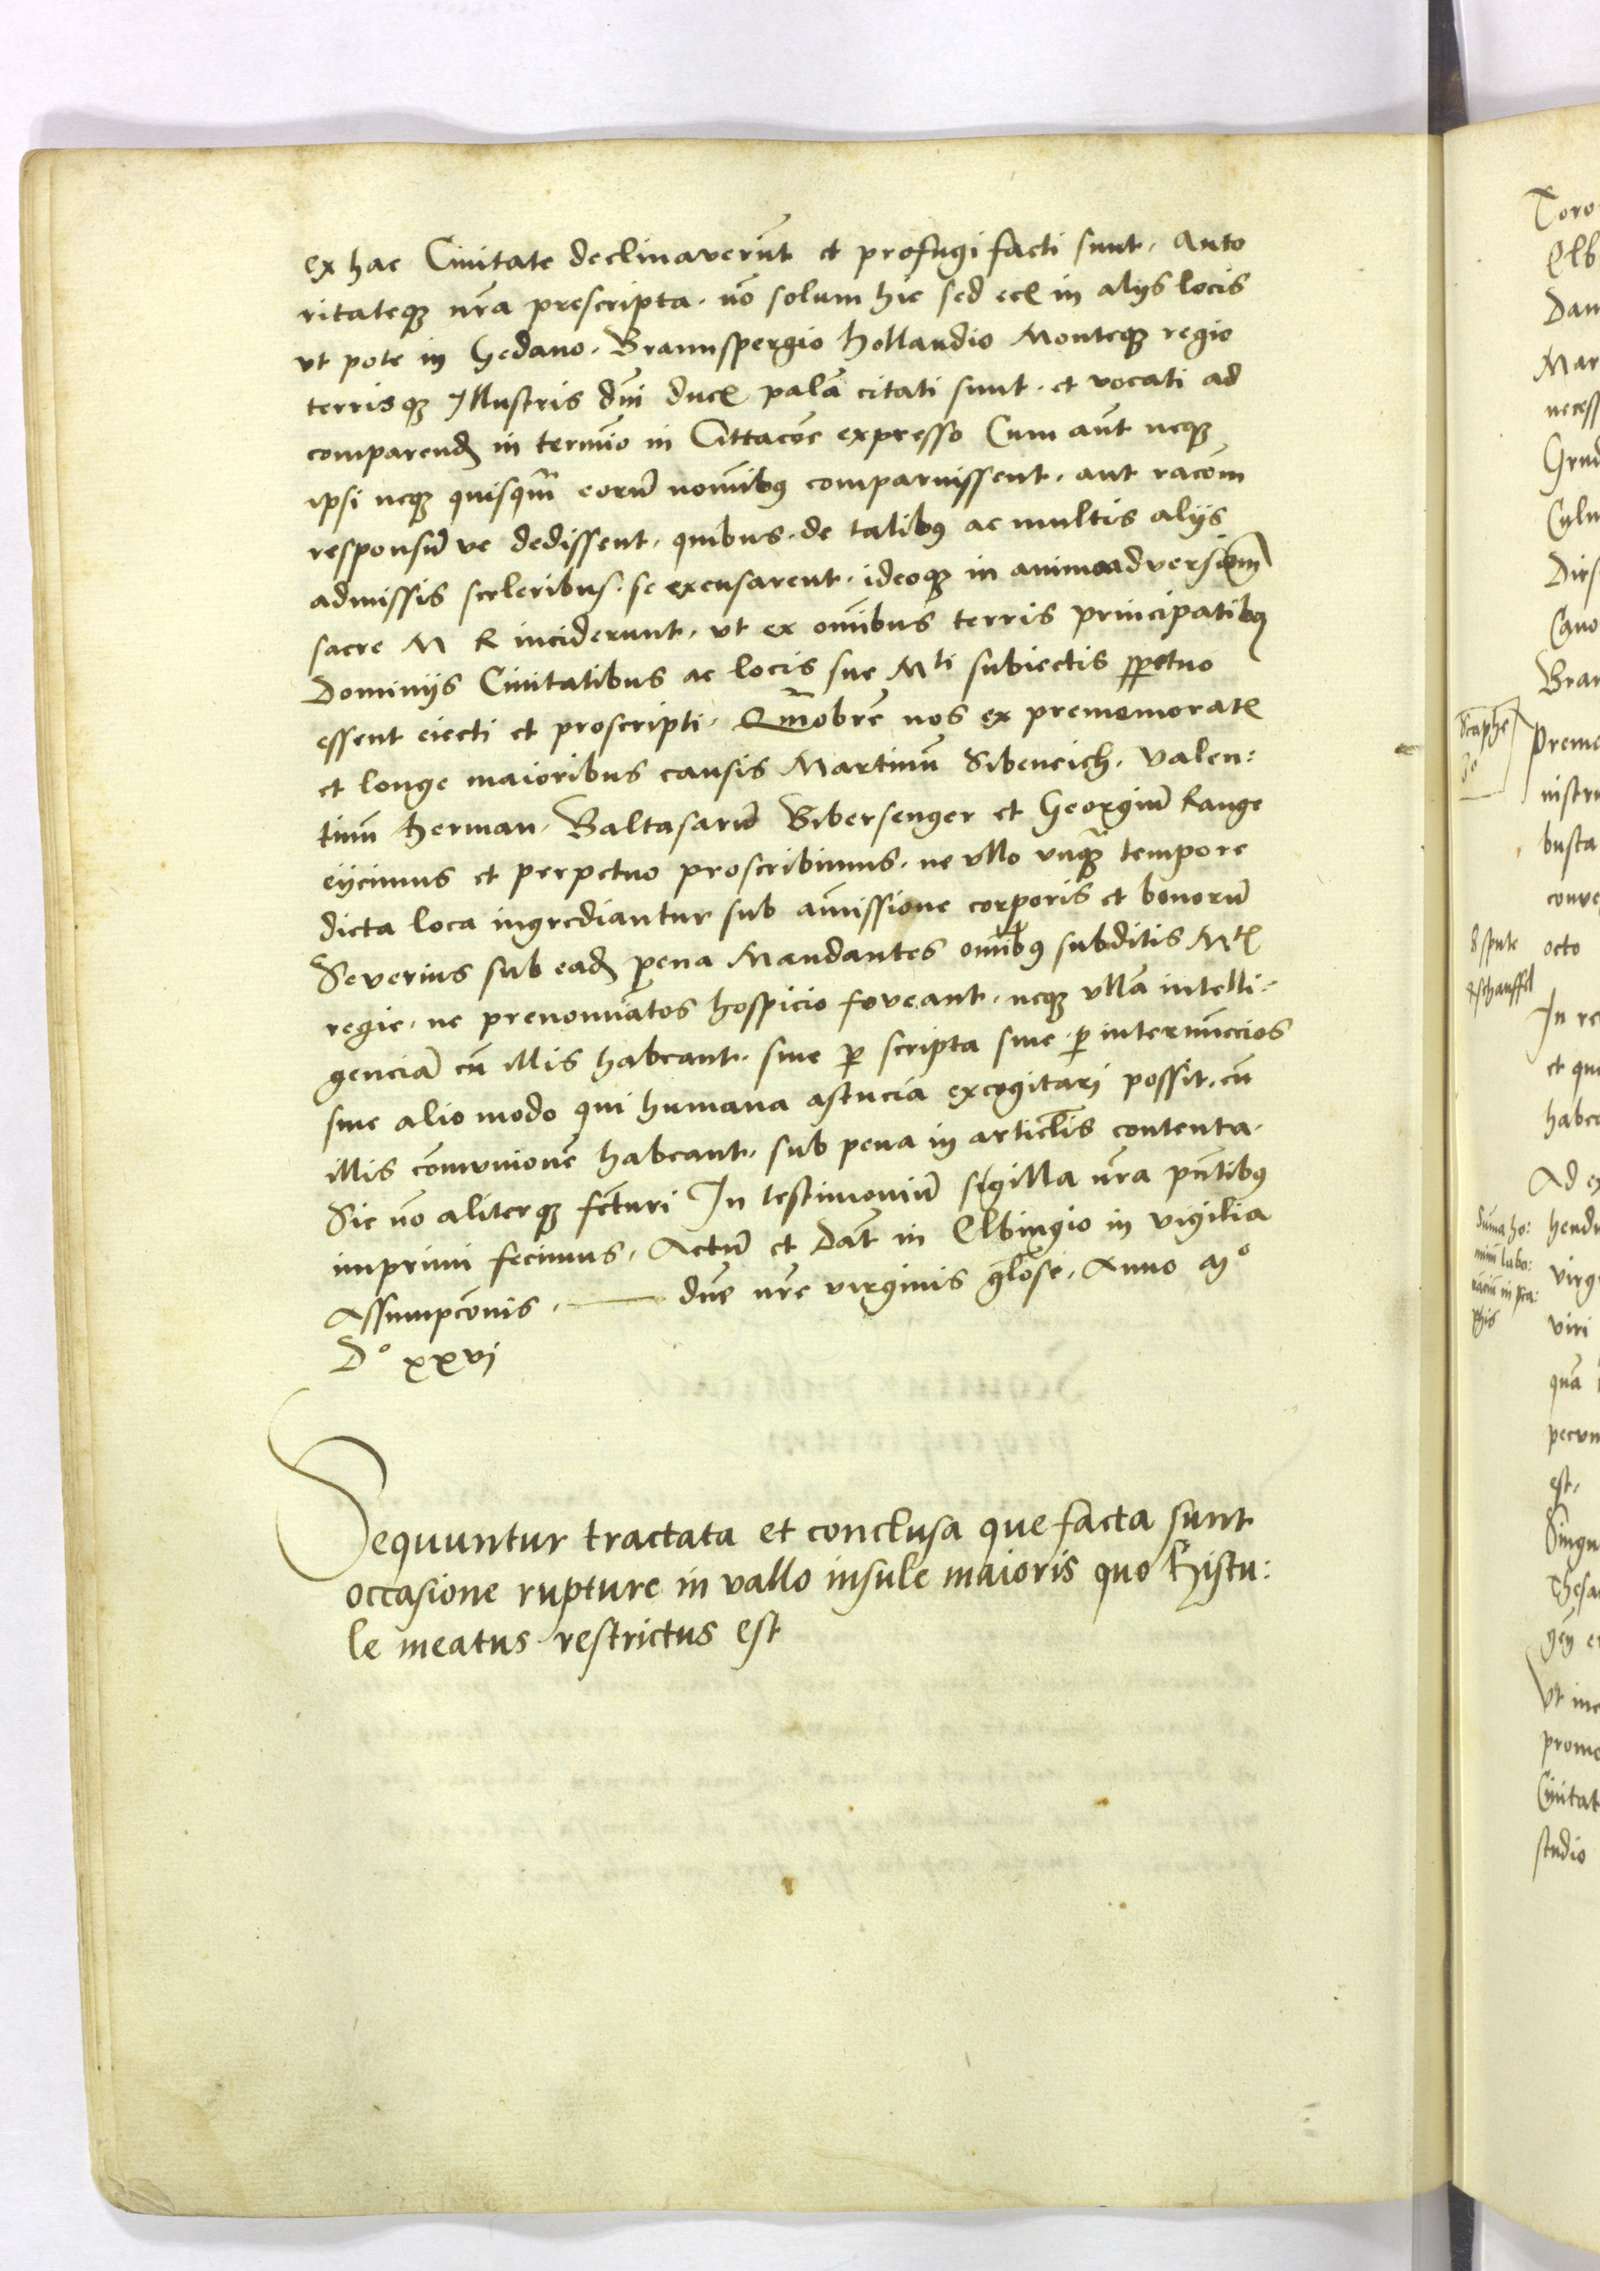 ex hac Civitate declinaverūt et profugi facti sunt. Auto
ritateqꝫ nr̄a prescripta. nō solum hic sed ecꝭ in alijs locis
vt pote in Gedano. Braunspergio Hollandio Monteqꝫ regio
terrisqꝫ Illustris dn̄i ducꝭ palā citati sunt. et vocati ad
comparendꝫ in termīo in Cittacōe expresso Cum aūt neqꝫ
ipsi neqꝫ quisqm̄ eorū nomībꝰ comparuissent. aut racōm
responsū ve dedissent. quibus. de talibꝰ ac multis alijs
admissis sceleribus. se excusarent. ideoqꝫ in animaadversiōm
sacre M R inciderunt. vt ex om̄ibus terris principatibꝰ
Dominijs Civitatibus ac locis sue Mti subiectis ꝑpetuo
essent eiecti et proscripti. Qm̄obrē nos ex prememoratꝭ
et longe maioribus causis Martinū Sibeneich. Valen:
tinū Herman. Baltasarū Bibersenger et Georgiū Range
eijcimus et perpetuo proscribimus. ne vllo vnqꝫ tempore
dicta loca ingrediantur sub am̄issione corporis et bonorū
Severius sub eadꝫ pena Mandantes om̄ibꝰ subditis Mtꝭ
regie. ne prenomīatos hospicio foveant. neqꝫ vllā intelli-
genciā cū illis habeant. sive ꝑ scripta sive ꝑ internūccios
sive alio modo qui humana astucia excogitari possit. cū
illis cōmunionē habeant. sub pena in articlis contenta.
Sic nō aliterqꝫ fcturi In testimoniū sigilla nr̄a pn̄tibꝰ
imprimi fecimus. Actū et Dat̄ in Elbingio in vigilia
Assumpcōnis. — dn̄e nr̄e virginis gl̄ose. Anno Mº
Dº xxvj
Sequuntur tractata et conclusa que facta sunt
occasione rupture in vallo insule maioris quo Histu:
le meatus restrictus est
Toro
Elb
Dan
Mar
necess
Grud
Culm
Dirs
Cano
Bran
Scaphe
Preme
nistru
busta
conve
octo
8 spate
In re
et qui
habea
Ad ex
Sūma ho:
minū labo:
phis
hendu
virg
viri
quā
pecun
est.
Singu
Thesa
promo
Civitat
studio